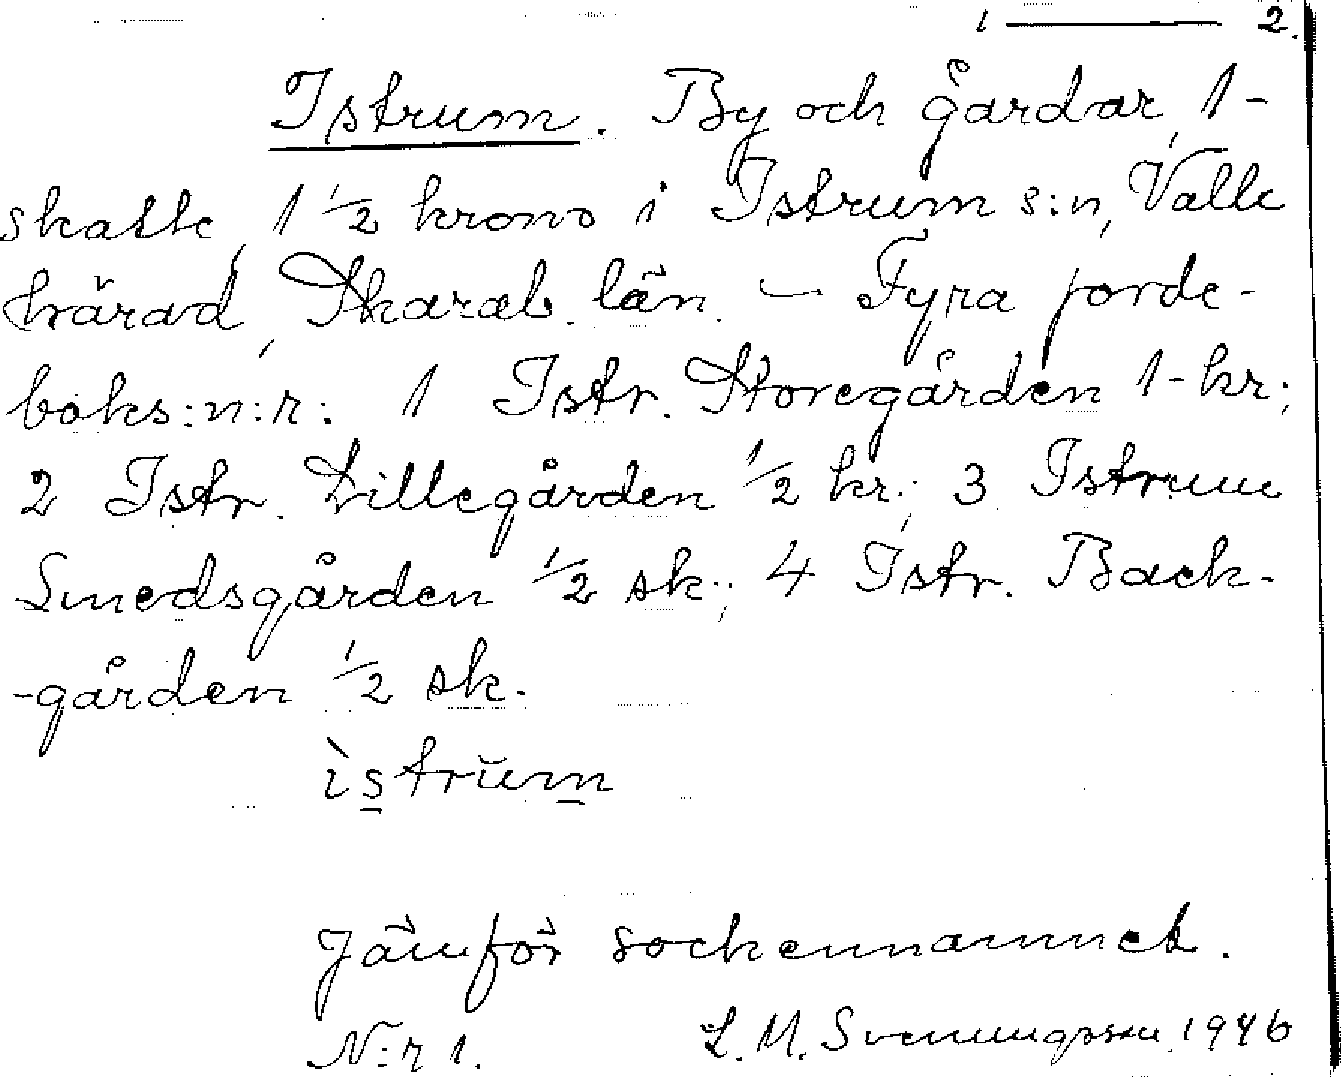 1 — 2.
Istrum. By och gårdar, 1-
skatte, 1 1/2 krono i Istrum s:n, Valle
härad, Skarab. län. — Fyra jorde-
boks:n:r: 1 Istr. Storegården 1-kr;
2 Istr. Lillegården 1/2 kr.; 3 Istrum
Smedsgården 1/2 sk.; 4 Istr. Back-
-gården 1/2 sk.
ìstrŭm
Jämför sockennamnet.
N:r 1. L. M. Svenungsson 1946